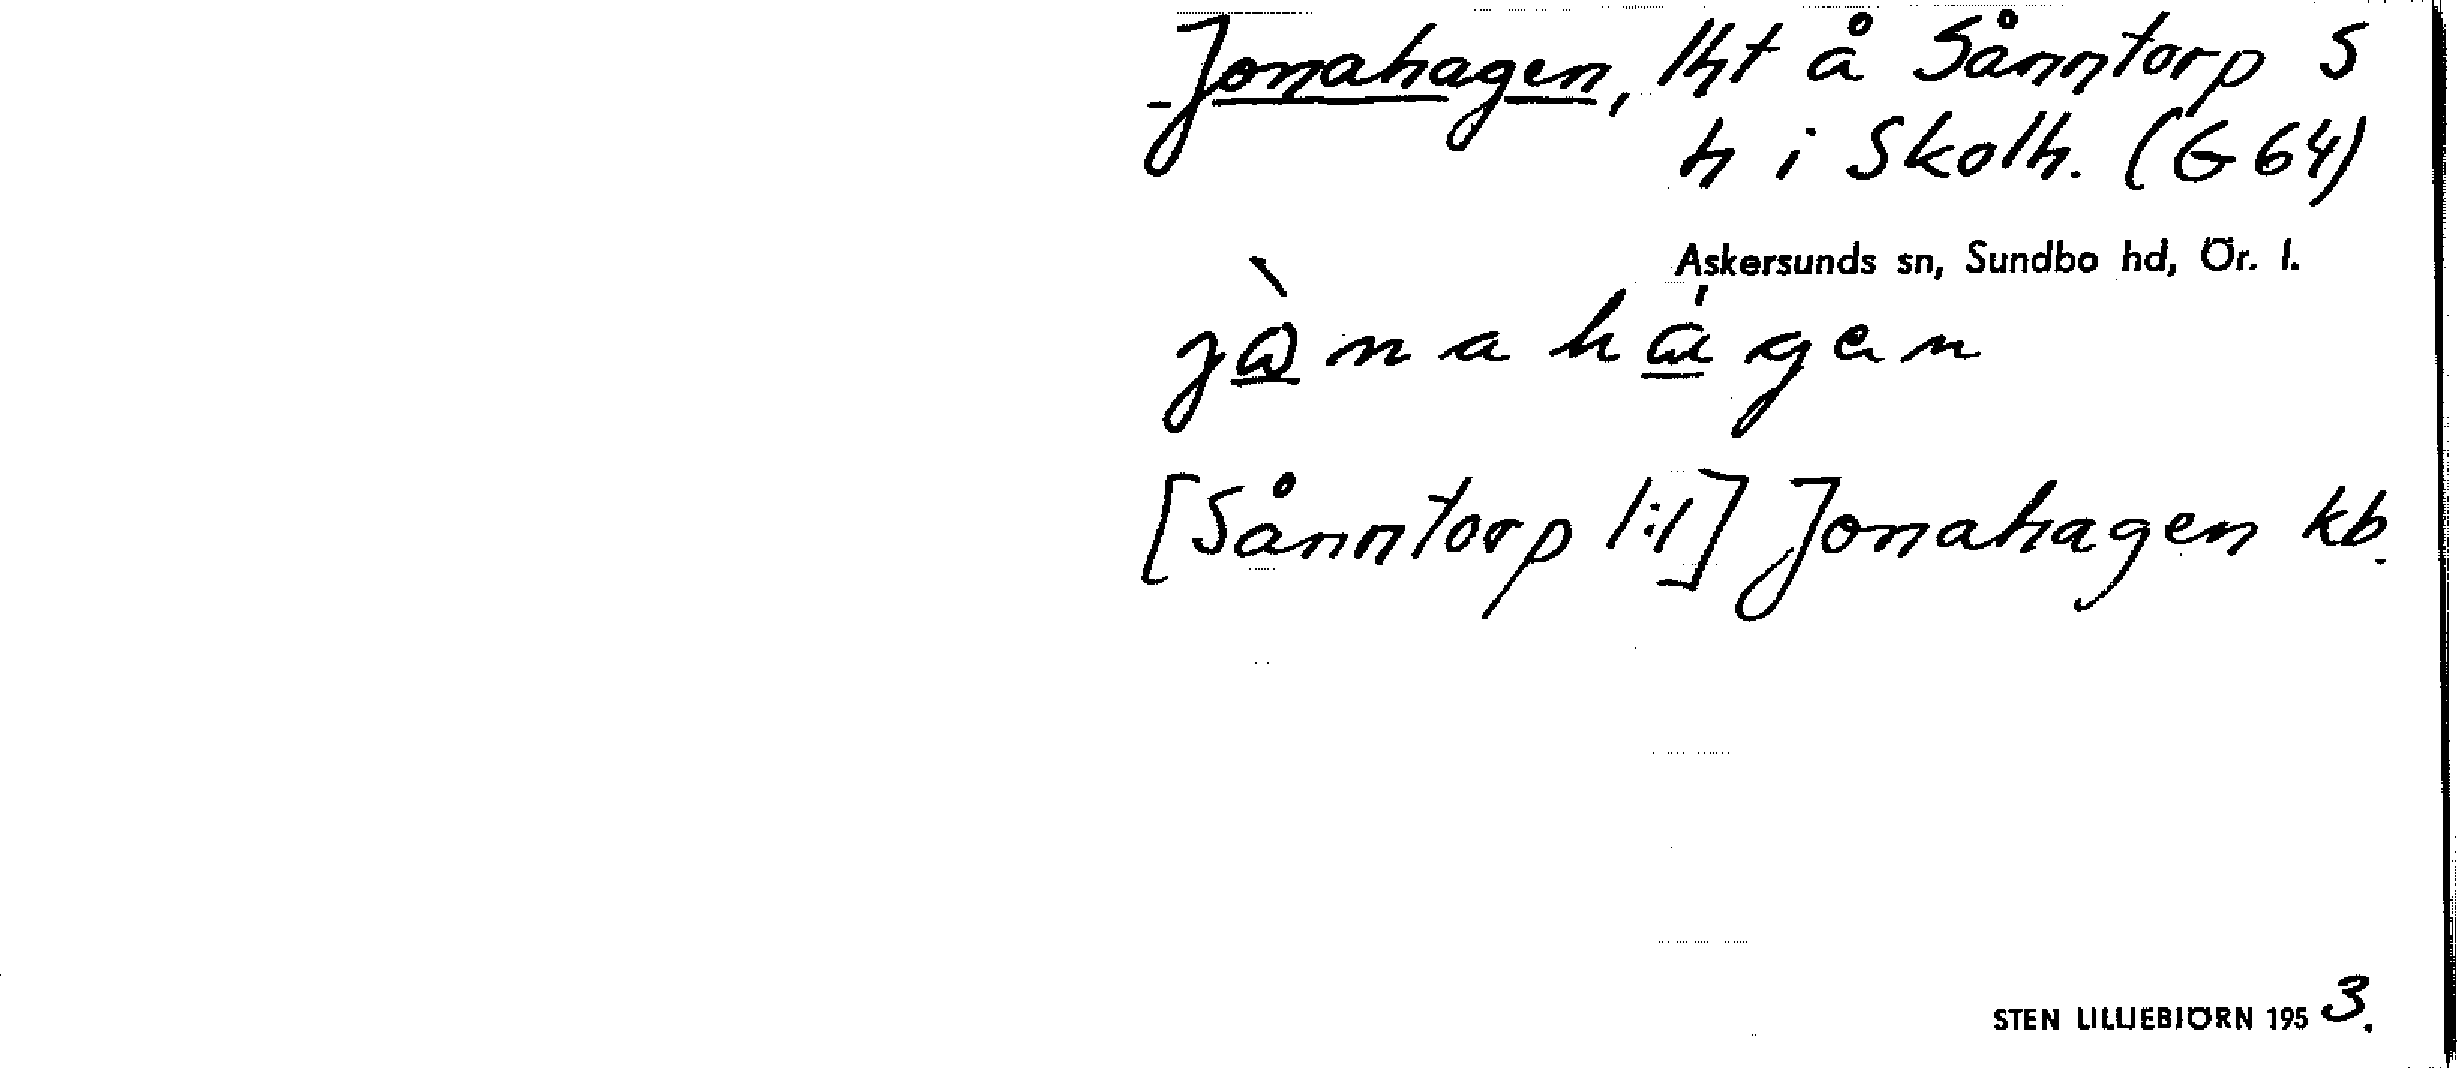 Jonahagen, lht å Sånntorp S
h i Skolh. (G 64)
Askersunds sn, Sundbo hd, Ör. l.
jònahágen
[Sånntorp 1:1] Jonahagen kb.
STEN LILLIEBJÖRN 1953.